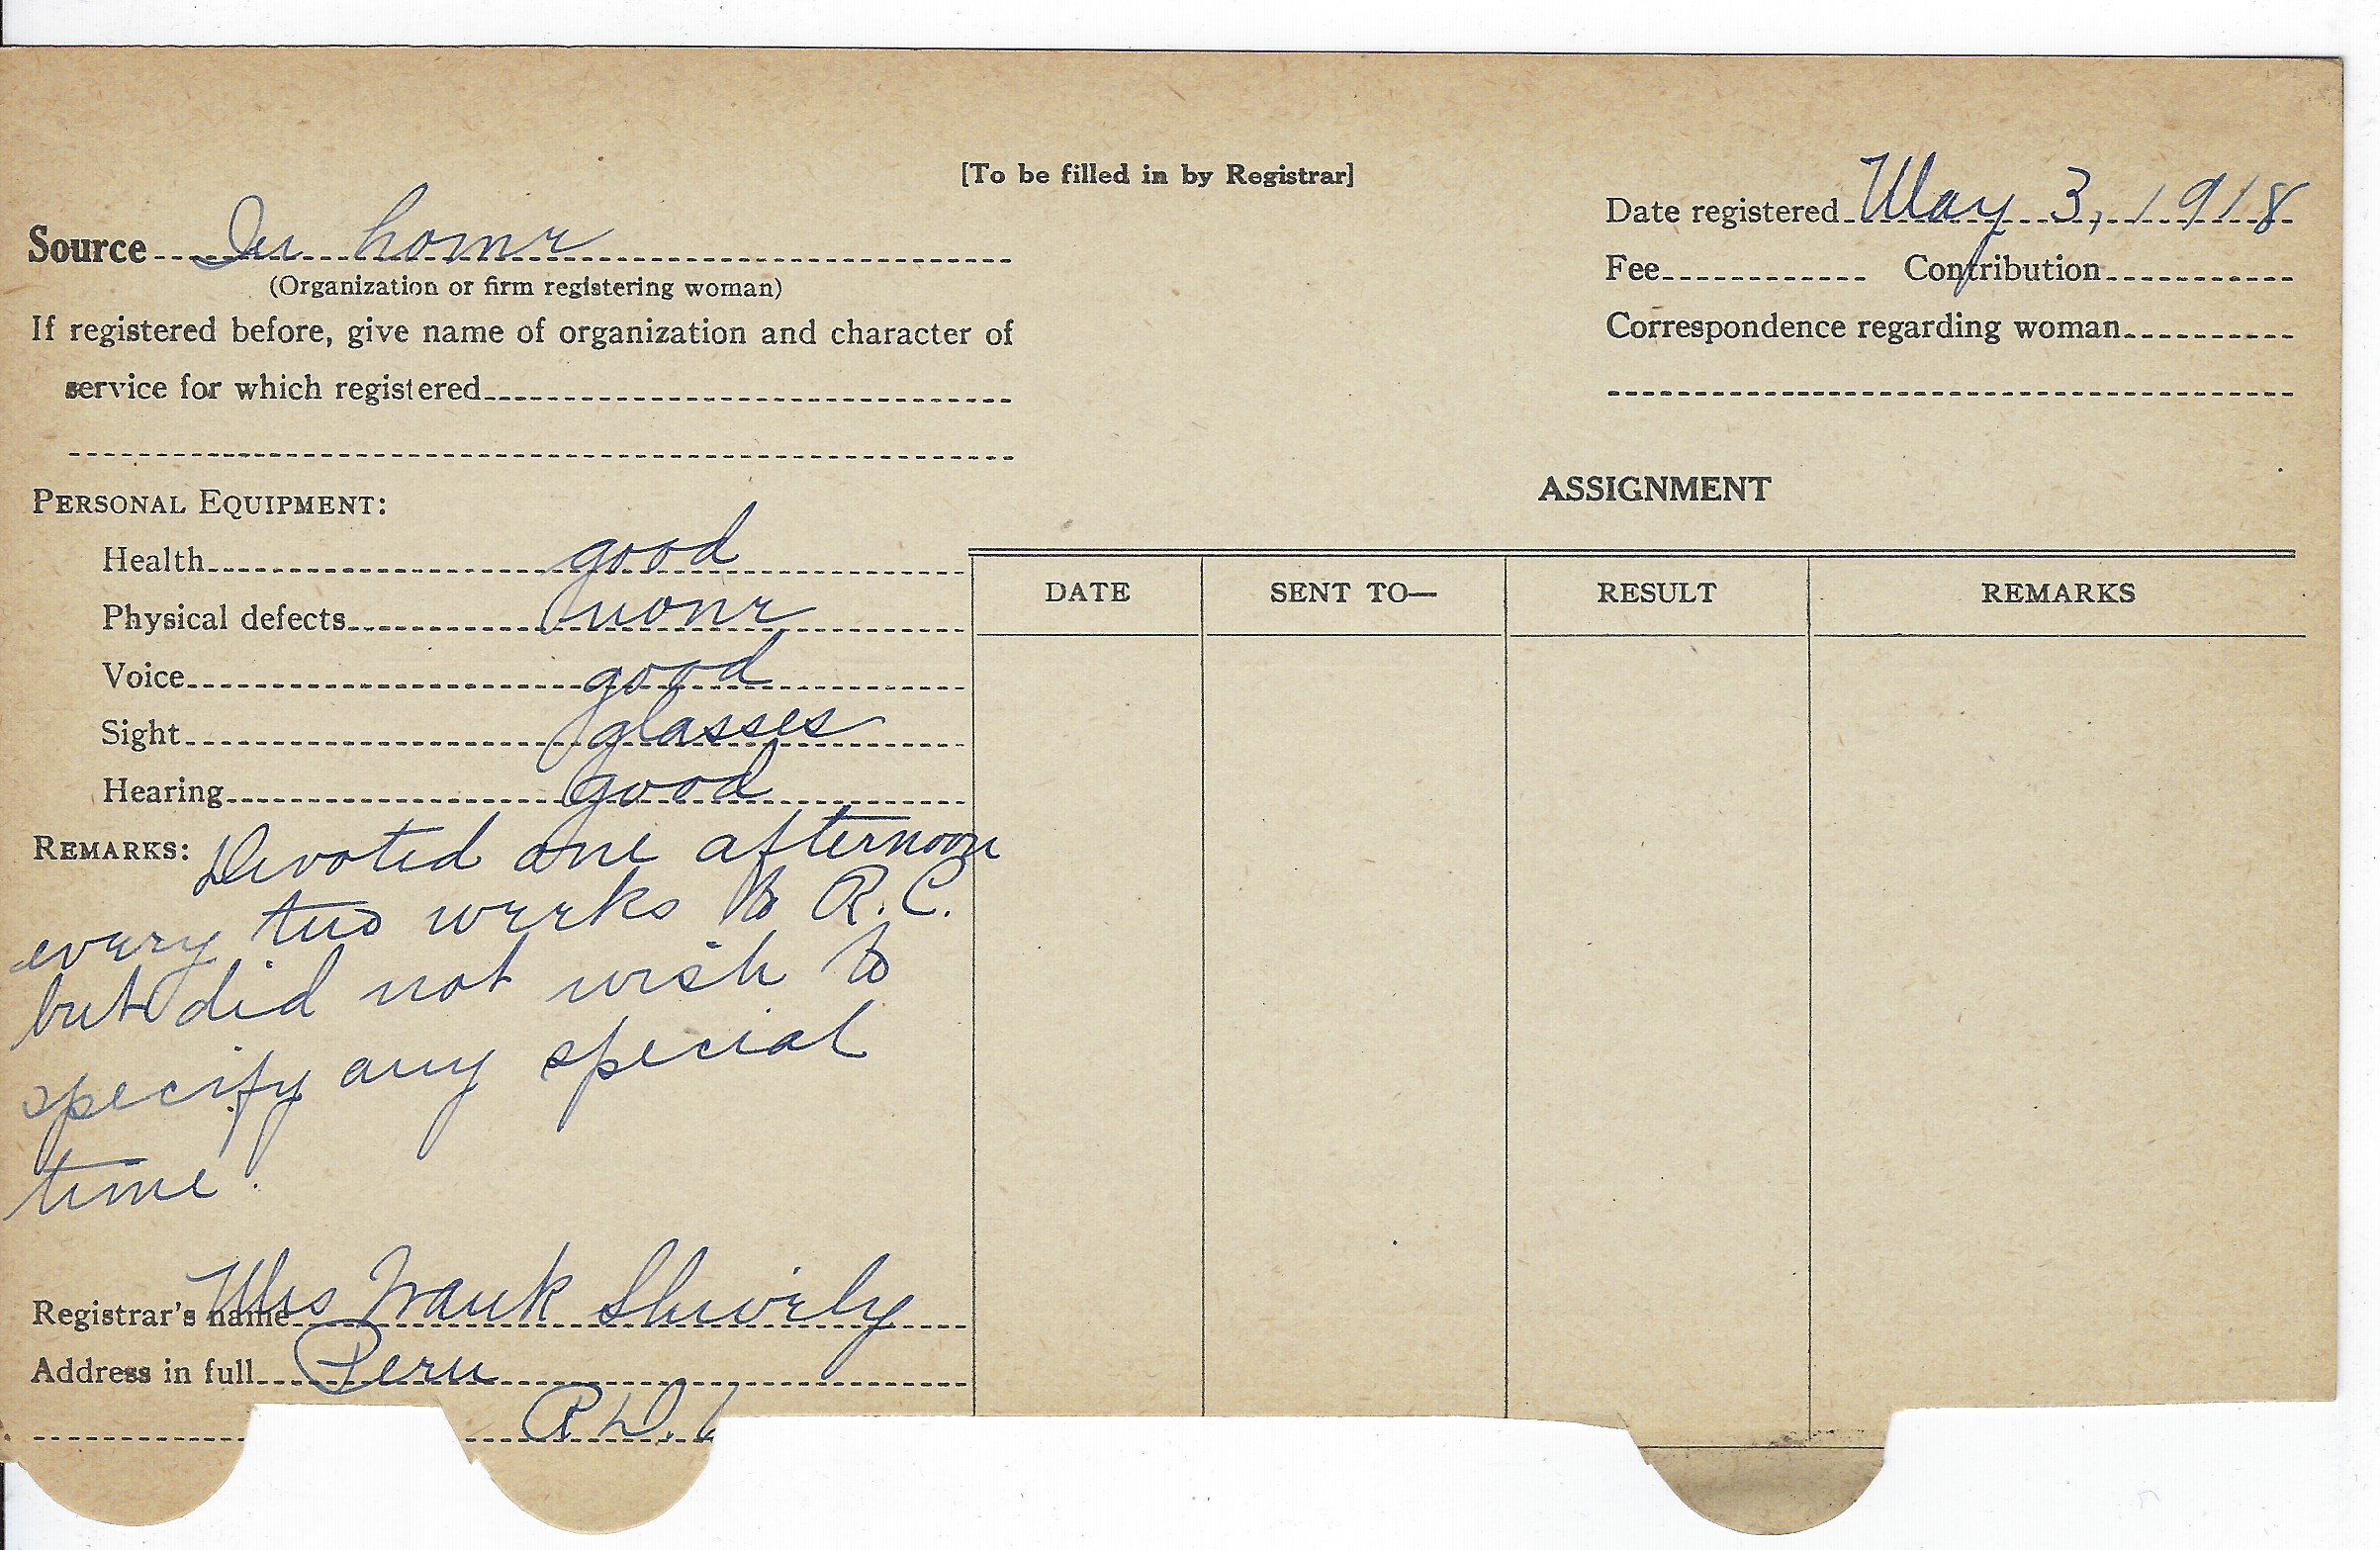 [To be filled in by Registrar]
Date registered May 3, 1918
Source In home
(Organization or firm registering woman)
Fee Contribution
If registered before, give name of organization and character of
Correspondence regarding woman
service for which registered
ASSIGNMENT
PERSONAL EQUIPMENT:
Health good
DATE SENT TO— RESULT REMARKS
Physical defects none
Voice good
Sight glasses
Hearing good
REMARKS: Devoted one afternoon
every two weeks to R.C.
but did not wish to
specify any special
time.
Registrar's name Mrs Frank Shively
Address in full Peru
R.D.